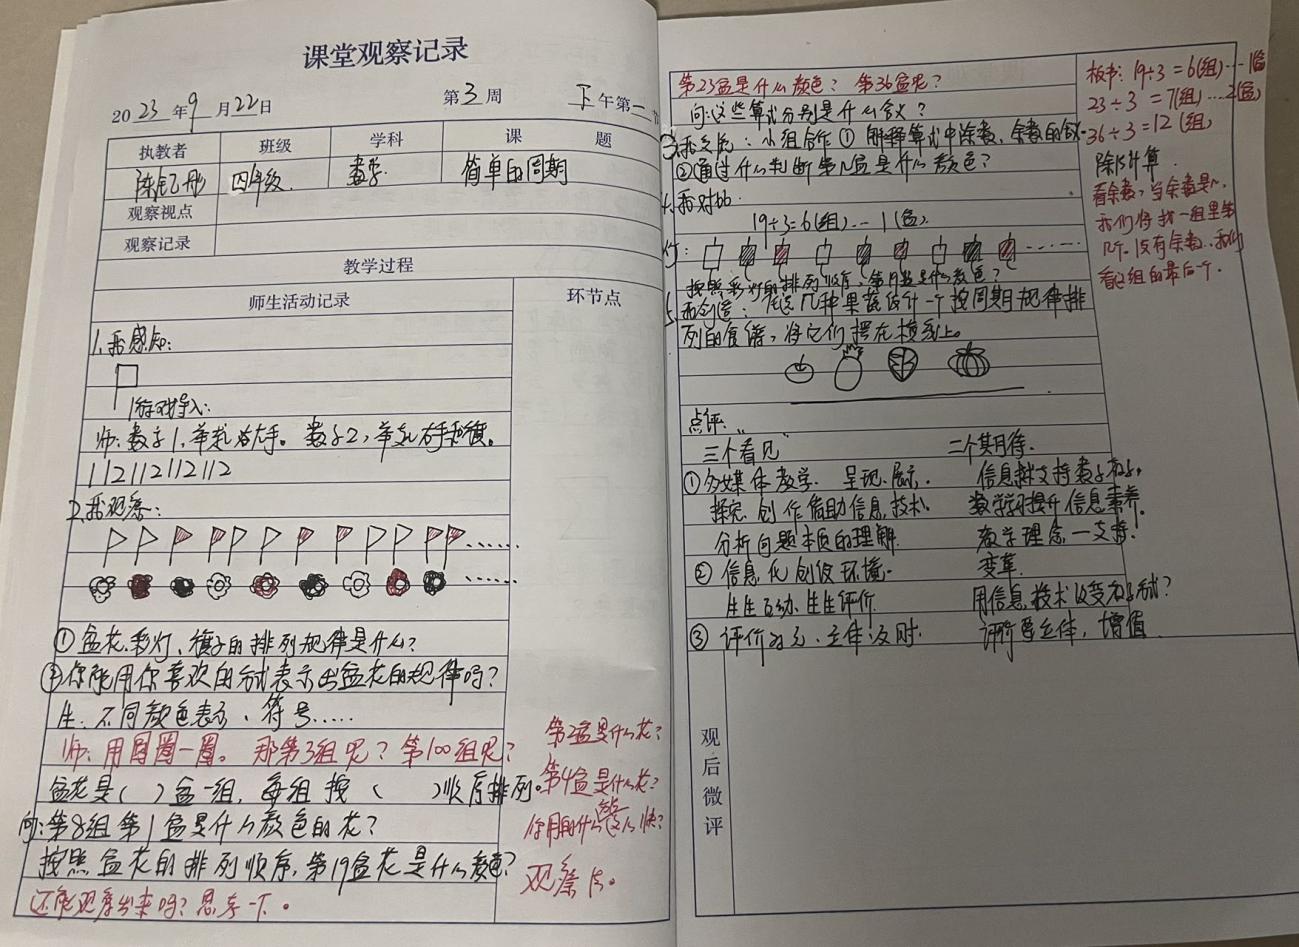 课堂观察记录
2023年9月22日 第3周 下午第一
执教者 班级 学科 课题
四年级 数学 简单的周期
观察视点
观察记录
教学过程
师生活动记录 环节点
1.我感知:
游戏导入:
师:数字1,举起左手。数字2,举起右手
112112112112
2.我观察:
……
……
①盆花、彩灯、旗子的排列规律是什么?
②你能用你喜欢的方式表示出盆花的规律吗?
生:不同颜色表示、符号……
师:用圆圈一圈。那第3组呢?第100组呢?
盆花是( )盆一组,每组按( )顺序排列。
问:第8组第1盆是什么颜色的花?
按照盆花的排列顺序,第19盆花是什么颜色?
还能观察出来吗?思考一下。
第2盆是什么花?
第4盆是什么花?
你用的什么这么快?
观察法。
第23盆是什么颜色?第36盆呢?
问:这些算式分别是什么含义?
3.我交流:小组合作①解释算式中除数、余数的含义.
②通过什么判断第几盆是什么颜色?
4.我对比.
19÷3=6(组)…1(盏)
灯: ……
按照彩灯的排列顺序,第19盏是什么颜色?
5.我创造:任选几种果蔬设计一个按周期规律排
列的食谱,将它们摆在横线上。
点评:
三个看见 二个期待.
①多媒体教学.呈现、展示. 信息技术支持数学
探究、创作借助信息技术. 数学学习提升信息素养.
分析问题本质的理解. 教学理念—支持!
②信息化创设环境. 变革.
生生互动、生生评价. 用信息技术改变方式?
③评价多元、立体、及时. 评价要立体,增值.
观后微评
板书:19÷3=6(组)…1(盆)
23÷3=7(组)…2(盆)
36÷3=12(组)
除法计算.
看余数,当余数是几,
我们将找一组里第
几个.没有余数,我们
看这组的最后一个.